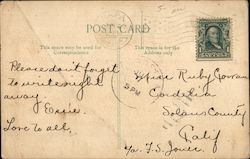 POST CARD
This space may be used for
Correspondence
This space is for the
Address only
Please don't forget
to write right
away
Essie.
Love to all.
Miss Ruby
Cordelia
Solano County
Calif
PM